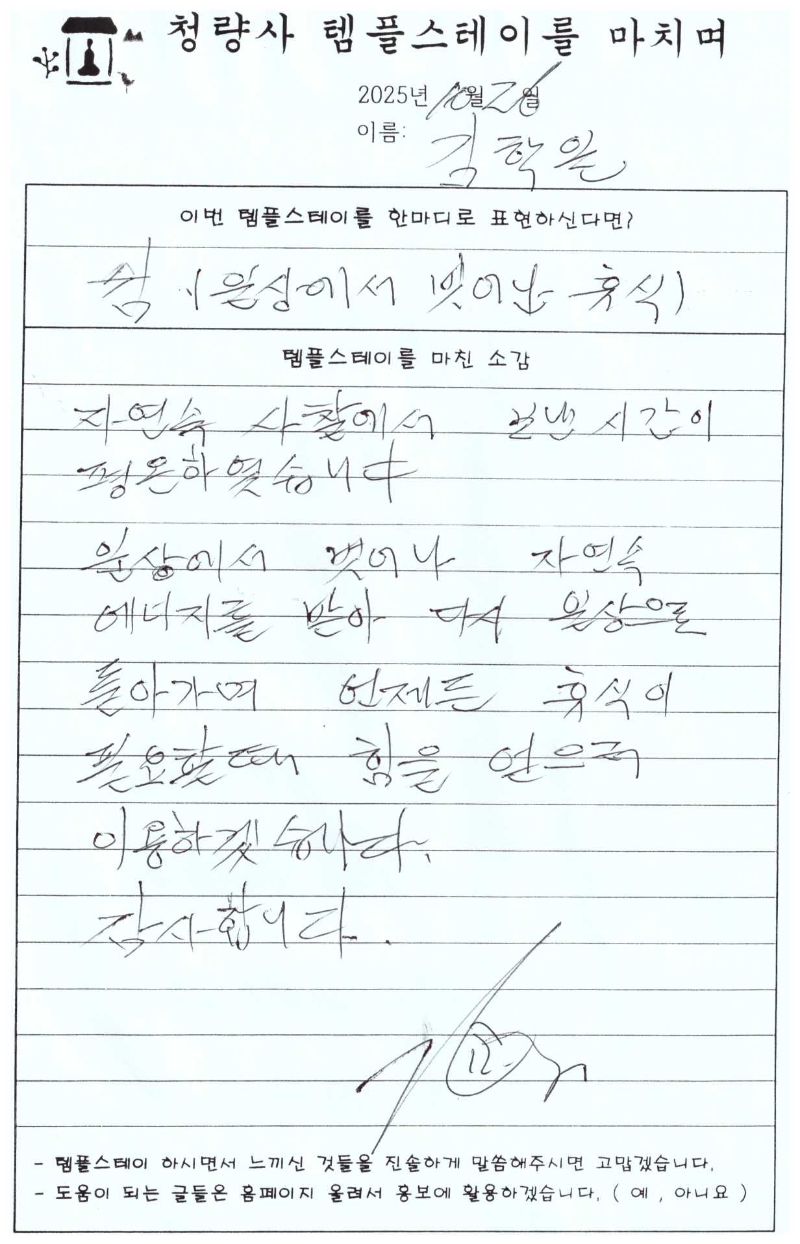 청량사 템플스테이를 마치며
2025년 10월 26일
이름: 김학일
이번 템플스테이를 한마디로 표현하신다면?
쉼 (일상에서 벗어난 휴식)
템플스테이를 마친 소감
자연속 사찰에서 보낸 시간이
평온하였습니다
일상에서 벗어나 자연속
에너지를 받아 다시 일상으로
돌아가며 언제든 휴식이
필요할때 힘을 얻으러
이용하겠습니다.
감사합니다.
- 템플스테이 하시면서 느끼신 것들을 진솔하게 말씀해주시면 고맙겠습니다.
- 도움이 되는 글들은 홈페이지 올려서 홍보에 활용하겠습니다. ( 예 , 아니요 )